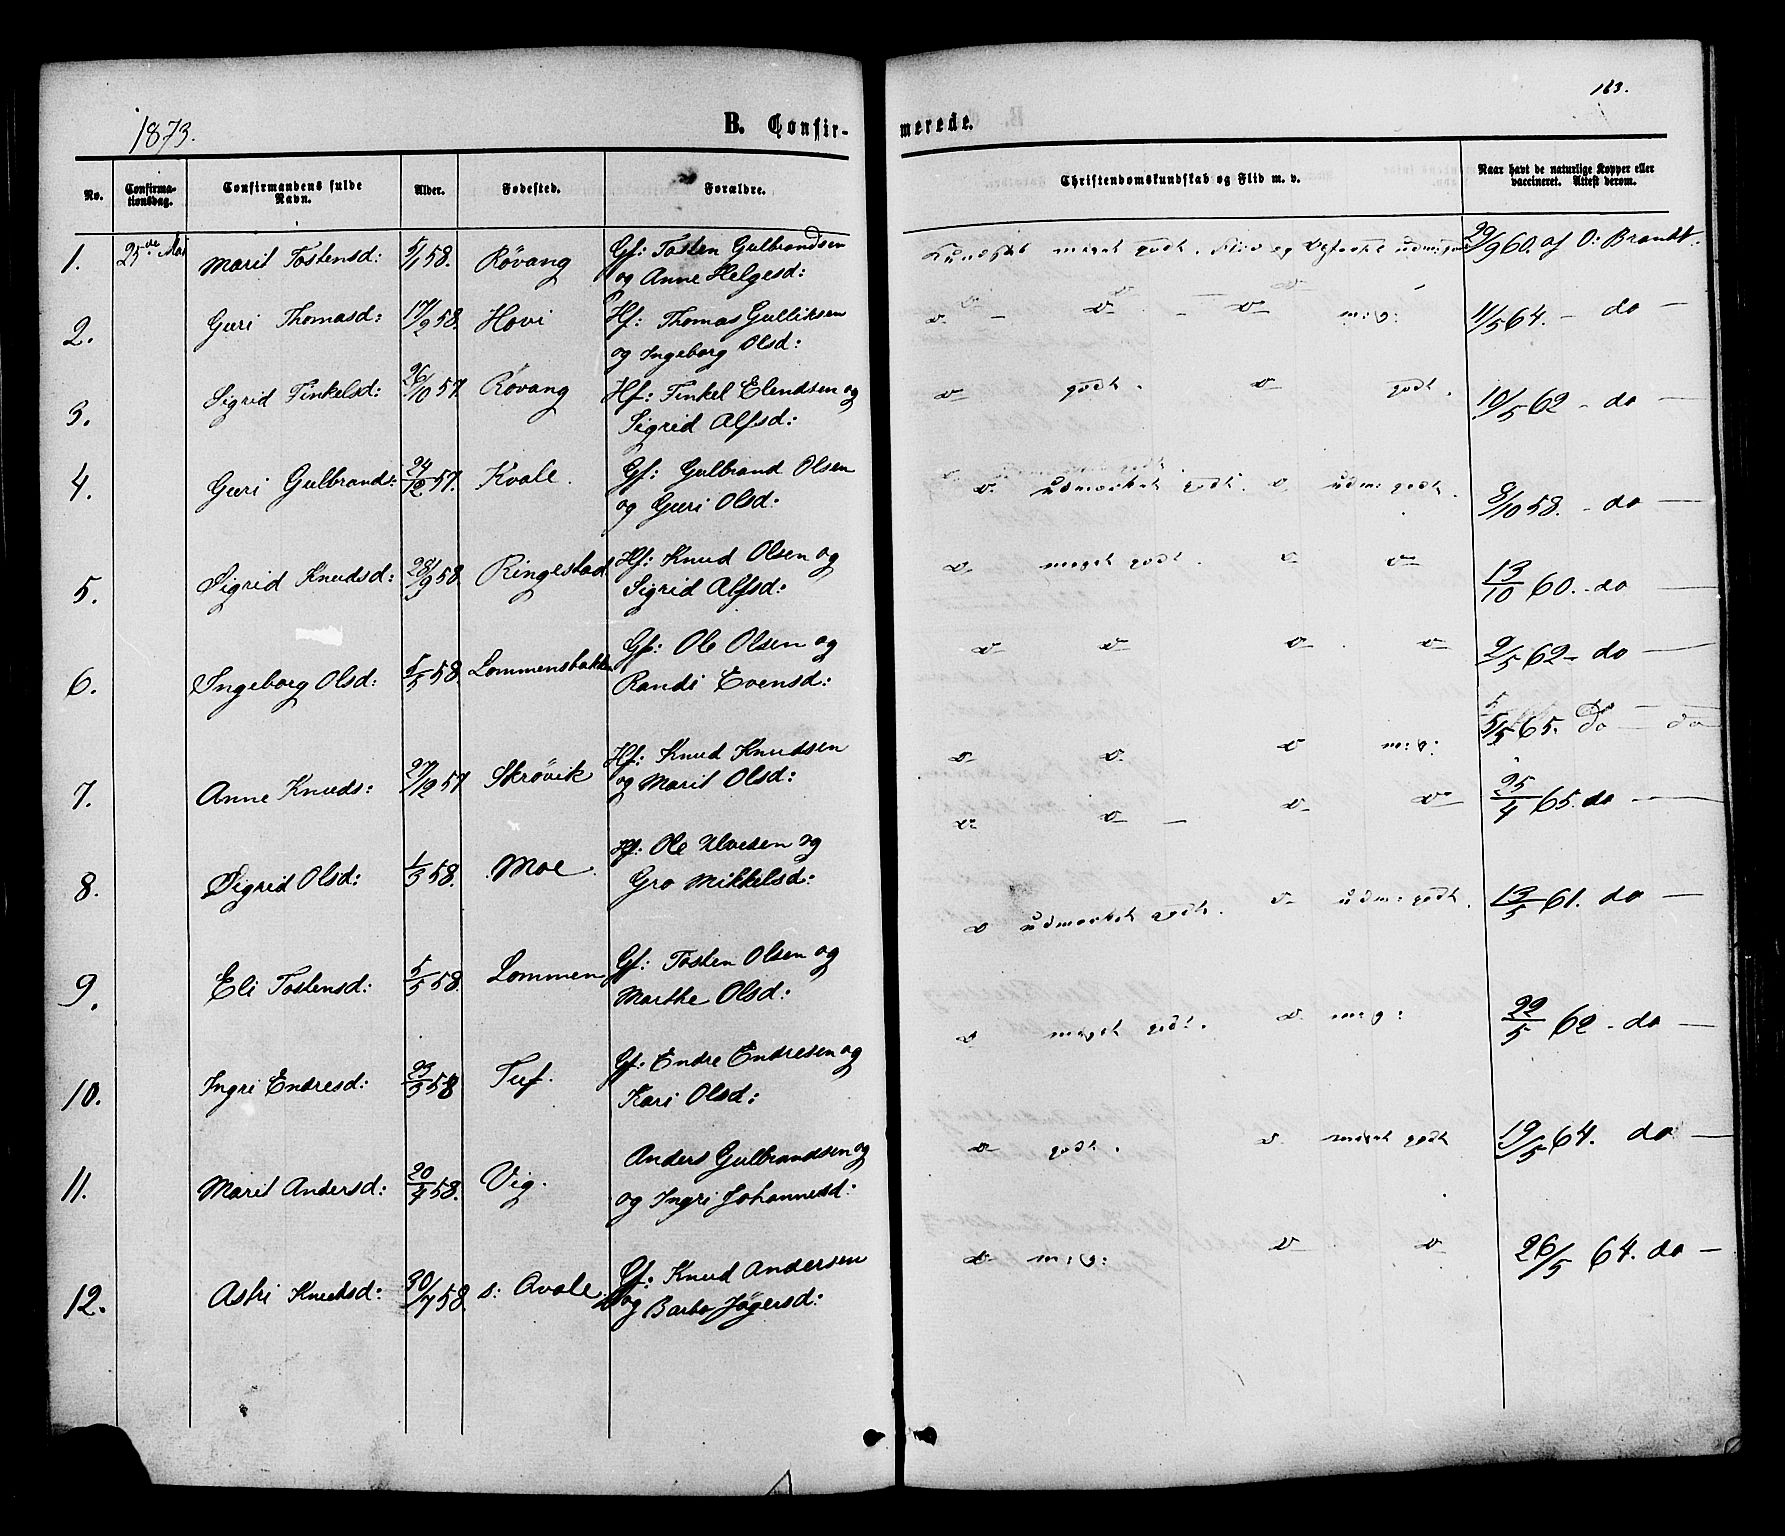 163.
1873.
B. Confirmerede.
No. Confirmationsdag. Confirmandens fulde Navn. Alder. Fødested. Forældre. Christendomskundskab og Flid m. v. Naar havt de naturlige Kopper eller vaccineret. Attest derom.
1. 25de Mai Marit Tostensd: 5/1 58. Røvang Gf: Tosten Gulbrandsen og Anne Helgesd: Kundskab meget godt. Flid og Opførsel 29/9 60. af O: Brandt.
2. Guri Thomasd: 17/9 58. Hovi Hf: Thomas Gulliksen og Ingeborg Olsd: v – v – v m: g: 11/5 64. – do –
3. Sigrid Finkelsd: 26/10 57 Røvang Hf: Finkel Elendsen og Sigrid Alfsd: v godt. v godt. 10/5 62 – do –
4. Guri Gulbrands: 24/12 57. Kvale. Gf: Gulbrand Olsen og Guri Olsd: v. udmærket godt. v udm: godt. 8/10 58. – do –
5. Sigrid Knudsd: 28/9 58 Ringestad Hf: Knud Olsen og Sigrid Alfsd: v. meget godt. v v 13/10 60. – do –
6. Ingeborg Olsd: 5/5 58 Lommensbakken Gf: Ole Olsen og Randi Evensd: v v v. v 2/5 62 – do –
5/5 65. Do – do
7. Anne Knuds: 27/12 57 Skrøvik Hf: Knud Knudsen og Marit Olsd: v v. v m: g: 25/4 65. do –
8. Sigrid Olsd: 1/3 58. Moe. Hf: Ole Ulvesen og Gro Mikkelsd: v v – v v 13/5 61. do –
9. Eli Tostensd: 5/5 58. Lommen Gf: Tosten Olsen og Marthe Olsd: v udmærket godt. v udm: godt. 22/5 62 – do –
10. Ingri Endresd: 23/3 58 Tuf. Gf: Endre Endresen og Kari Olsd: v meget godt. v. m: g: 19/5 64. do –
11. Marit Andersd: 20/4 58. Vig. Anders Gulbrandsen og og Ingri Johannesd: v godt. v. meget godt 26/5 64. do –
12. Astri Knudsd: 30/7 58 s: Qvale. Gf: Knud Andersen og Barbo Jøgersd: v m: g: v v